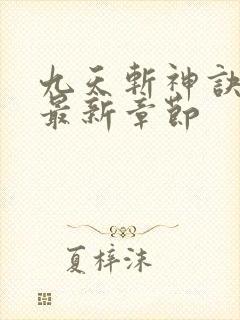 九天斬神訣
最新章節
夏梓沫